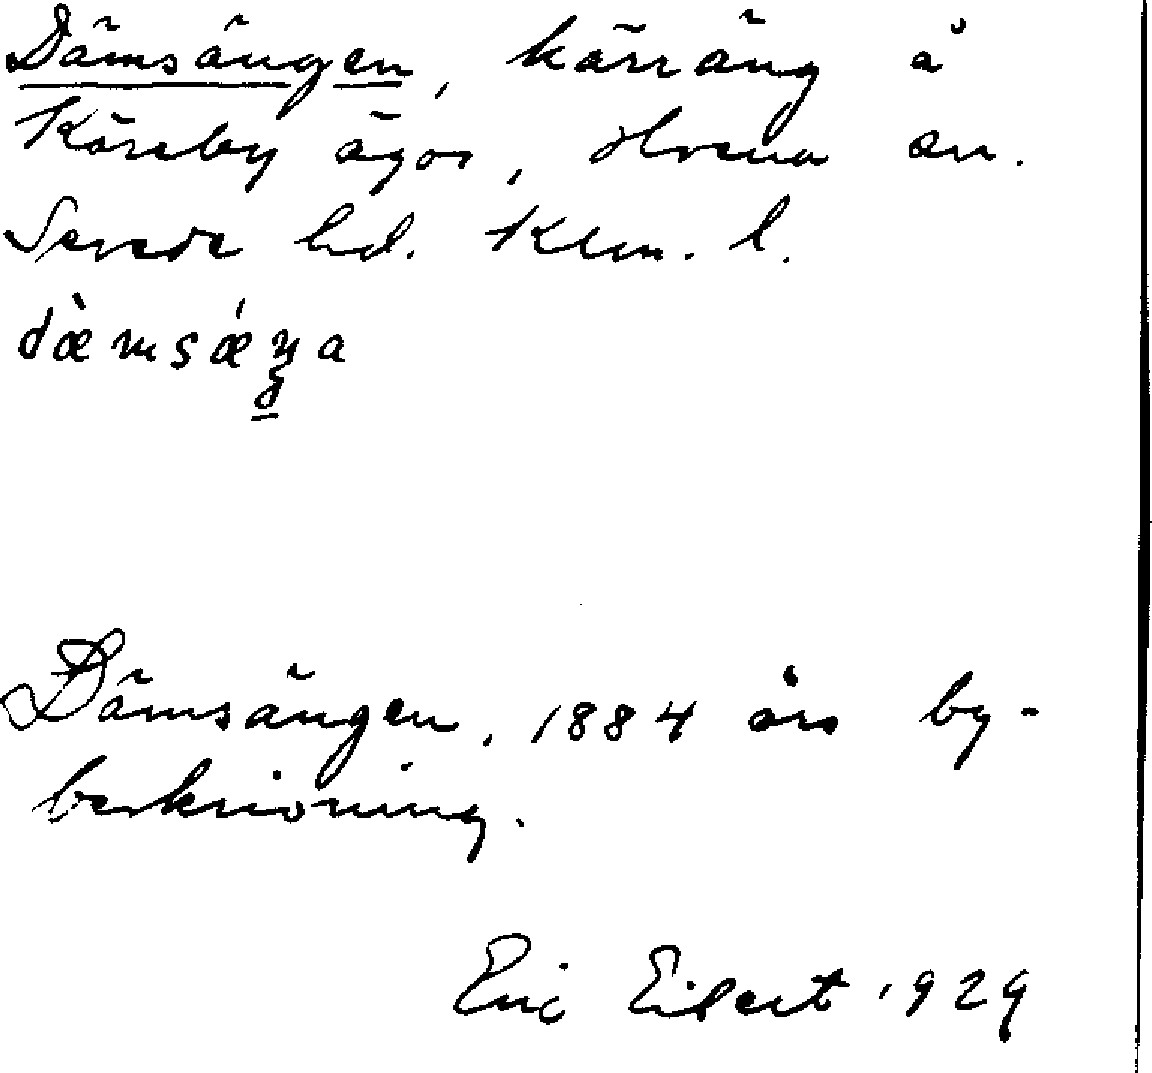 Dämsängen, kärräng å
Kärrby ägor, sn.
Sevede hd. Klm. l.
dæ̀msǽŋa
Dämsängen, 1884 års by-
beskrivning.
Eric Eibert 1929